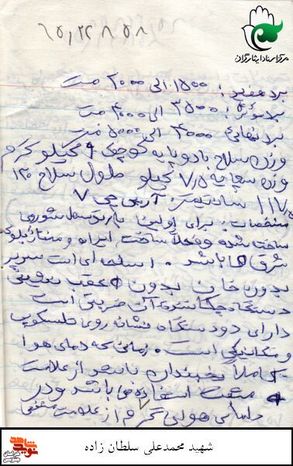 مرکز اسناد ایثارگران
برد مفید: ۱۵۰۰ الی ۲۰۰۰ مت
برد موثر: ۳۵۰۰ الی ۴۰۰۰ مت
برد نهائی: ۴۰۰۰ الی ۵۰۰۰ مت
وزن سلاح با دو پایه کوچک ۹ کیلو گرم
وزن سه پایه ۷/۵ کیلو طول سلاح ۱۲۰
سانتیمتر: آر پی جی ۷
مشخصات: برای اولین بار توسط شوروی
ساخته شده و فعلا ساخت ایران و ممالک بلوک
شرق می باشد. اسلحه ای است سرپر
بدون خان بدون عقب نشینی
دستگاه چکانندگی آن ضربتی است
دارای دو دستگاه نشانه روی تلسکوپی
و مکانیکی است. زمانی که دمای هوا
کاملا یخبندان باشد از علامت
مثبت استفاده می باشد و در
دمای هوایی گرم از علامت منفی
شهید محمدعلی سلطان زاده